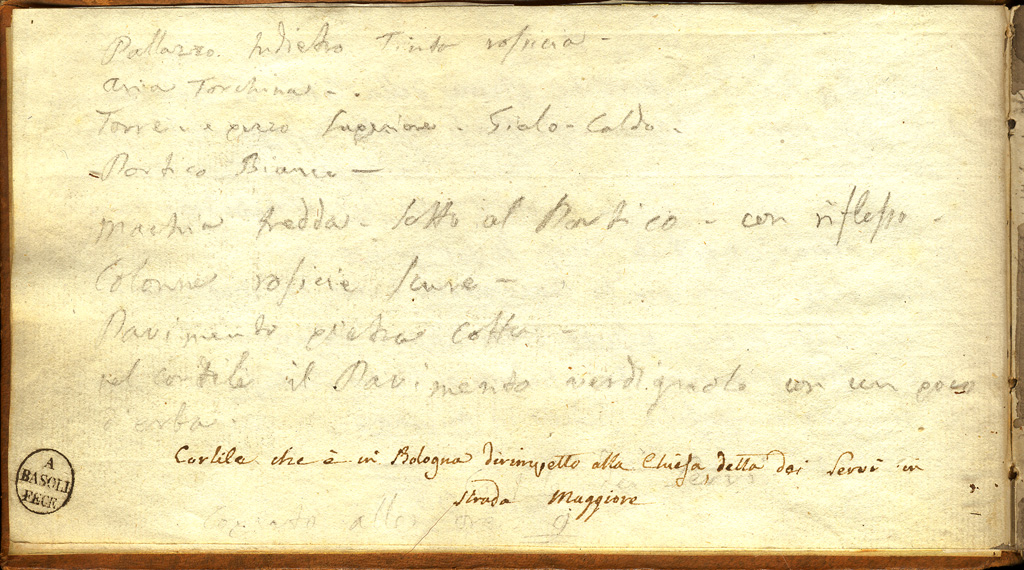 Pallazzo. Indietro Tinto rossicia -
Aria Torchina - .
Torre - e pezzo Superiore - Gialo - Caldo -
Portico Bianco -
Machia fredda - sotto al Portico - con riflesso -
Colonne rossicie scure -
Pavimento pietra cotta -
nel cortile il Pavimento verdignolo con un poco
d'erba
Cortile che è in Bologna dirimpetto alla Chiesa detta dei Servi in
strada Maggiore
Servi
Copiato alle ore 9
A
BASOLI
FECE